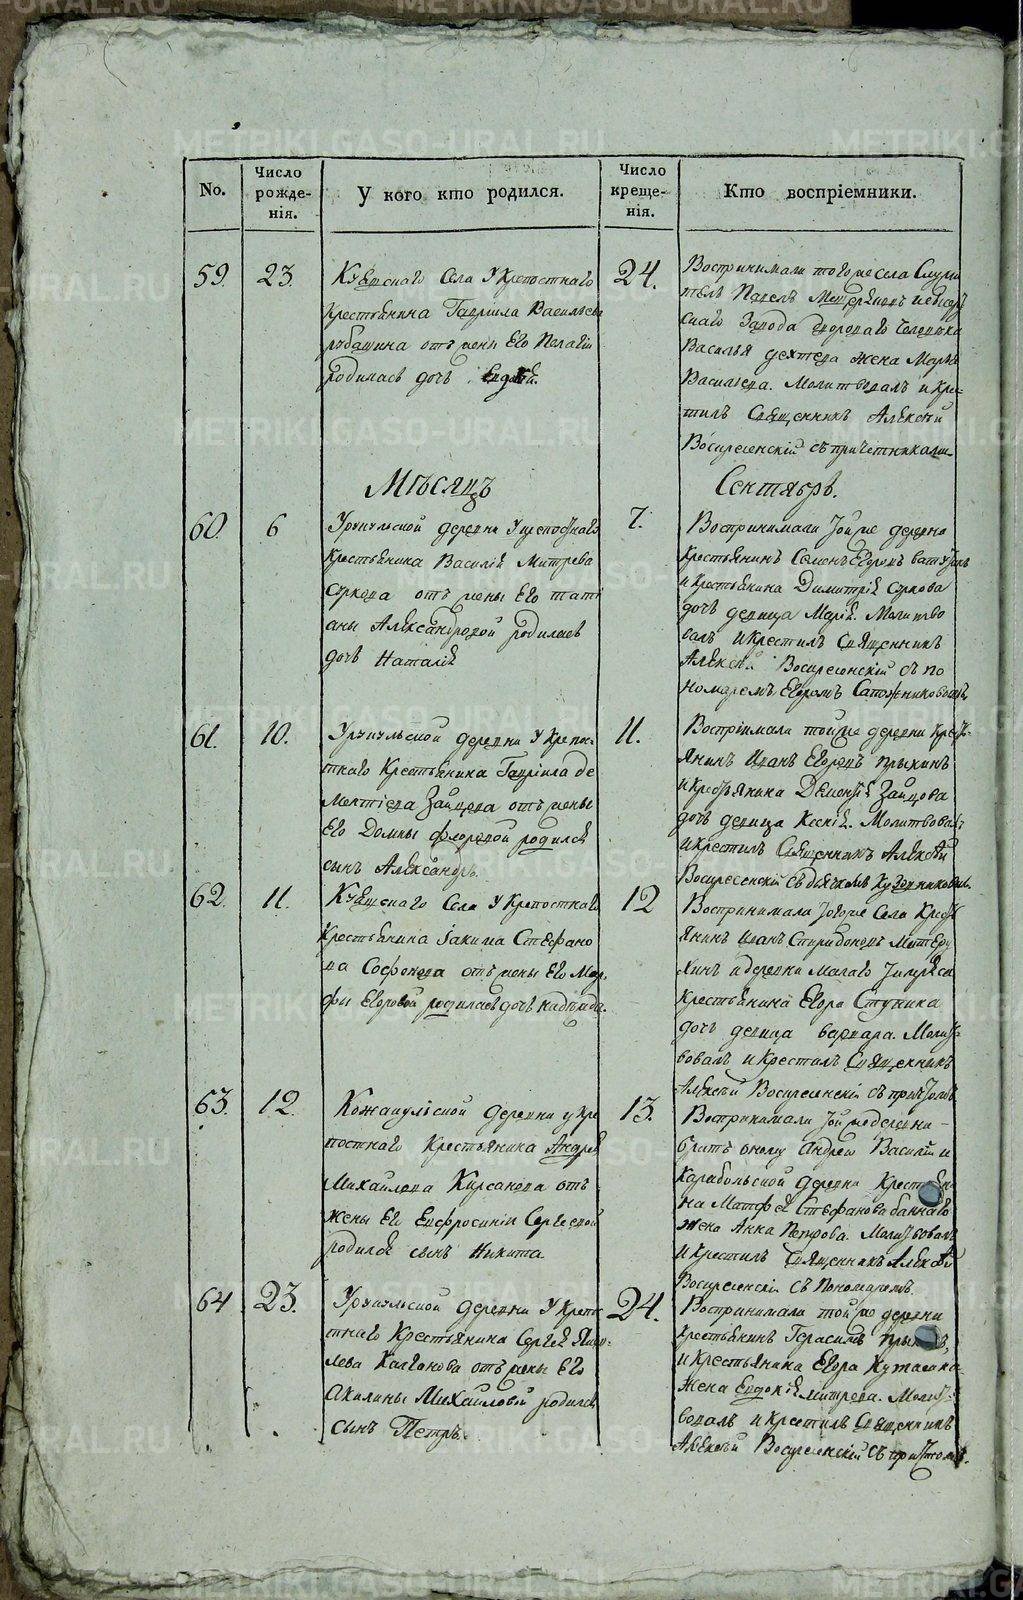 No.
Число рожде-нія.
У кого кто родился.
Число креще-нія.
Кто воспріемники.
59. 23.
Села у Крепостнаго
Крестьянина Гаврила Васильева
отъ жены Его Пелагіи
родилась дочь
24.
Воспринимали тогоже села
Павелъ
Завода
Василья жена
Васильева. Молитвовалъ и кре-
тилъ Священникъ Алексѣй
Воскресенскій съ причетниками
Мѣсяцъ
Сентябрь.
60. 6
деревни у крепостнаго
Крестьянина Василія Митрева
Суркова отъ жены Его Тать
аны Александровой родилась
дочь Наталія
7.
Воспринимали тойже деревни
Крестьянинъ Семенъ Егоровъ
и Крестьянина Димитрія Суркова
дочь девица Марія. Молитво
валъ и Крестилъ Священникъ
Алексѣй Воскресенскій съ по
номаремъ Егоромъ Сапожниковымъ
61. 10.
деревни у Крепос-
тнаго Крестьянина Гавріила Де
ментіева Зайцова отъ жены
Его Домны Флоровой родился
сынъ Александръ.
11.
Воспріимали тойже деревни Крест-
янинъ Иванъ Егоровъ
и Крестьянина Зайцова
дочь девица Ксенія. Молитвовалъ
и крестилъ Священникъ Алексѣй
Воскресенскій съ дьячкомъ
62. 11.
Села у Крепостнаго
Крестьянина Іакима Стефано
ва Софонова отъ жены Его Мар
фы Егоровой родилась дочь Надежда.
12
Воспринимали тогоже Села Крест
янинъ Иванъ Спиридоновъ
и деревни Малаго
Крестьянина Егора Ступина
дочь девица Варвара. Молит
вовалъ и Крестилъ Священникъ
Алексѣй Воскресенскій съ причтомъ
63. 12.
деревни у Кре
постнаго Крестьянина Андрея
Михайлова Кирсанова отъ
жены Его Евфросиніи Сергеевой
родился сынъ Никита
13.
Воспринимали тойже деревни –
братъ оному Андрею Василій и
деревни Крестьяни
на Матфея Стефанова
жена Анна Петрова. Молитвовалъ
и Крестилъ Священникъ Алексѣй
Воскресенскій съ Пономаремъ.
64 23.
деревни у Крепо
стнаго Крестьянина Сергея
отъ жены Его
Акилины Михайловой родился
сынъ Петръ.
24.
Воспринимали тойже деревни
Крестьянинъ Герасимъ
и Крестьянина Егора
жена Евдокія Митрева. Молит-
вовалъ и крестилъ Священникъ
Алексѣй Воскресенскій съ причтомъ.
METRIKI.GASO-URAL.RU